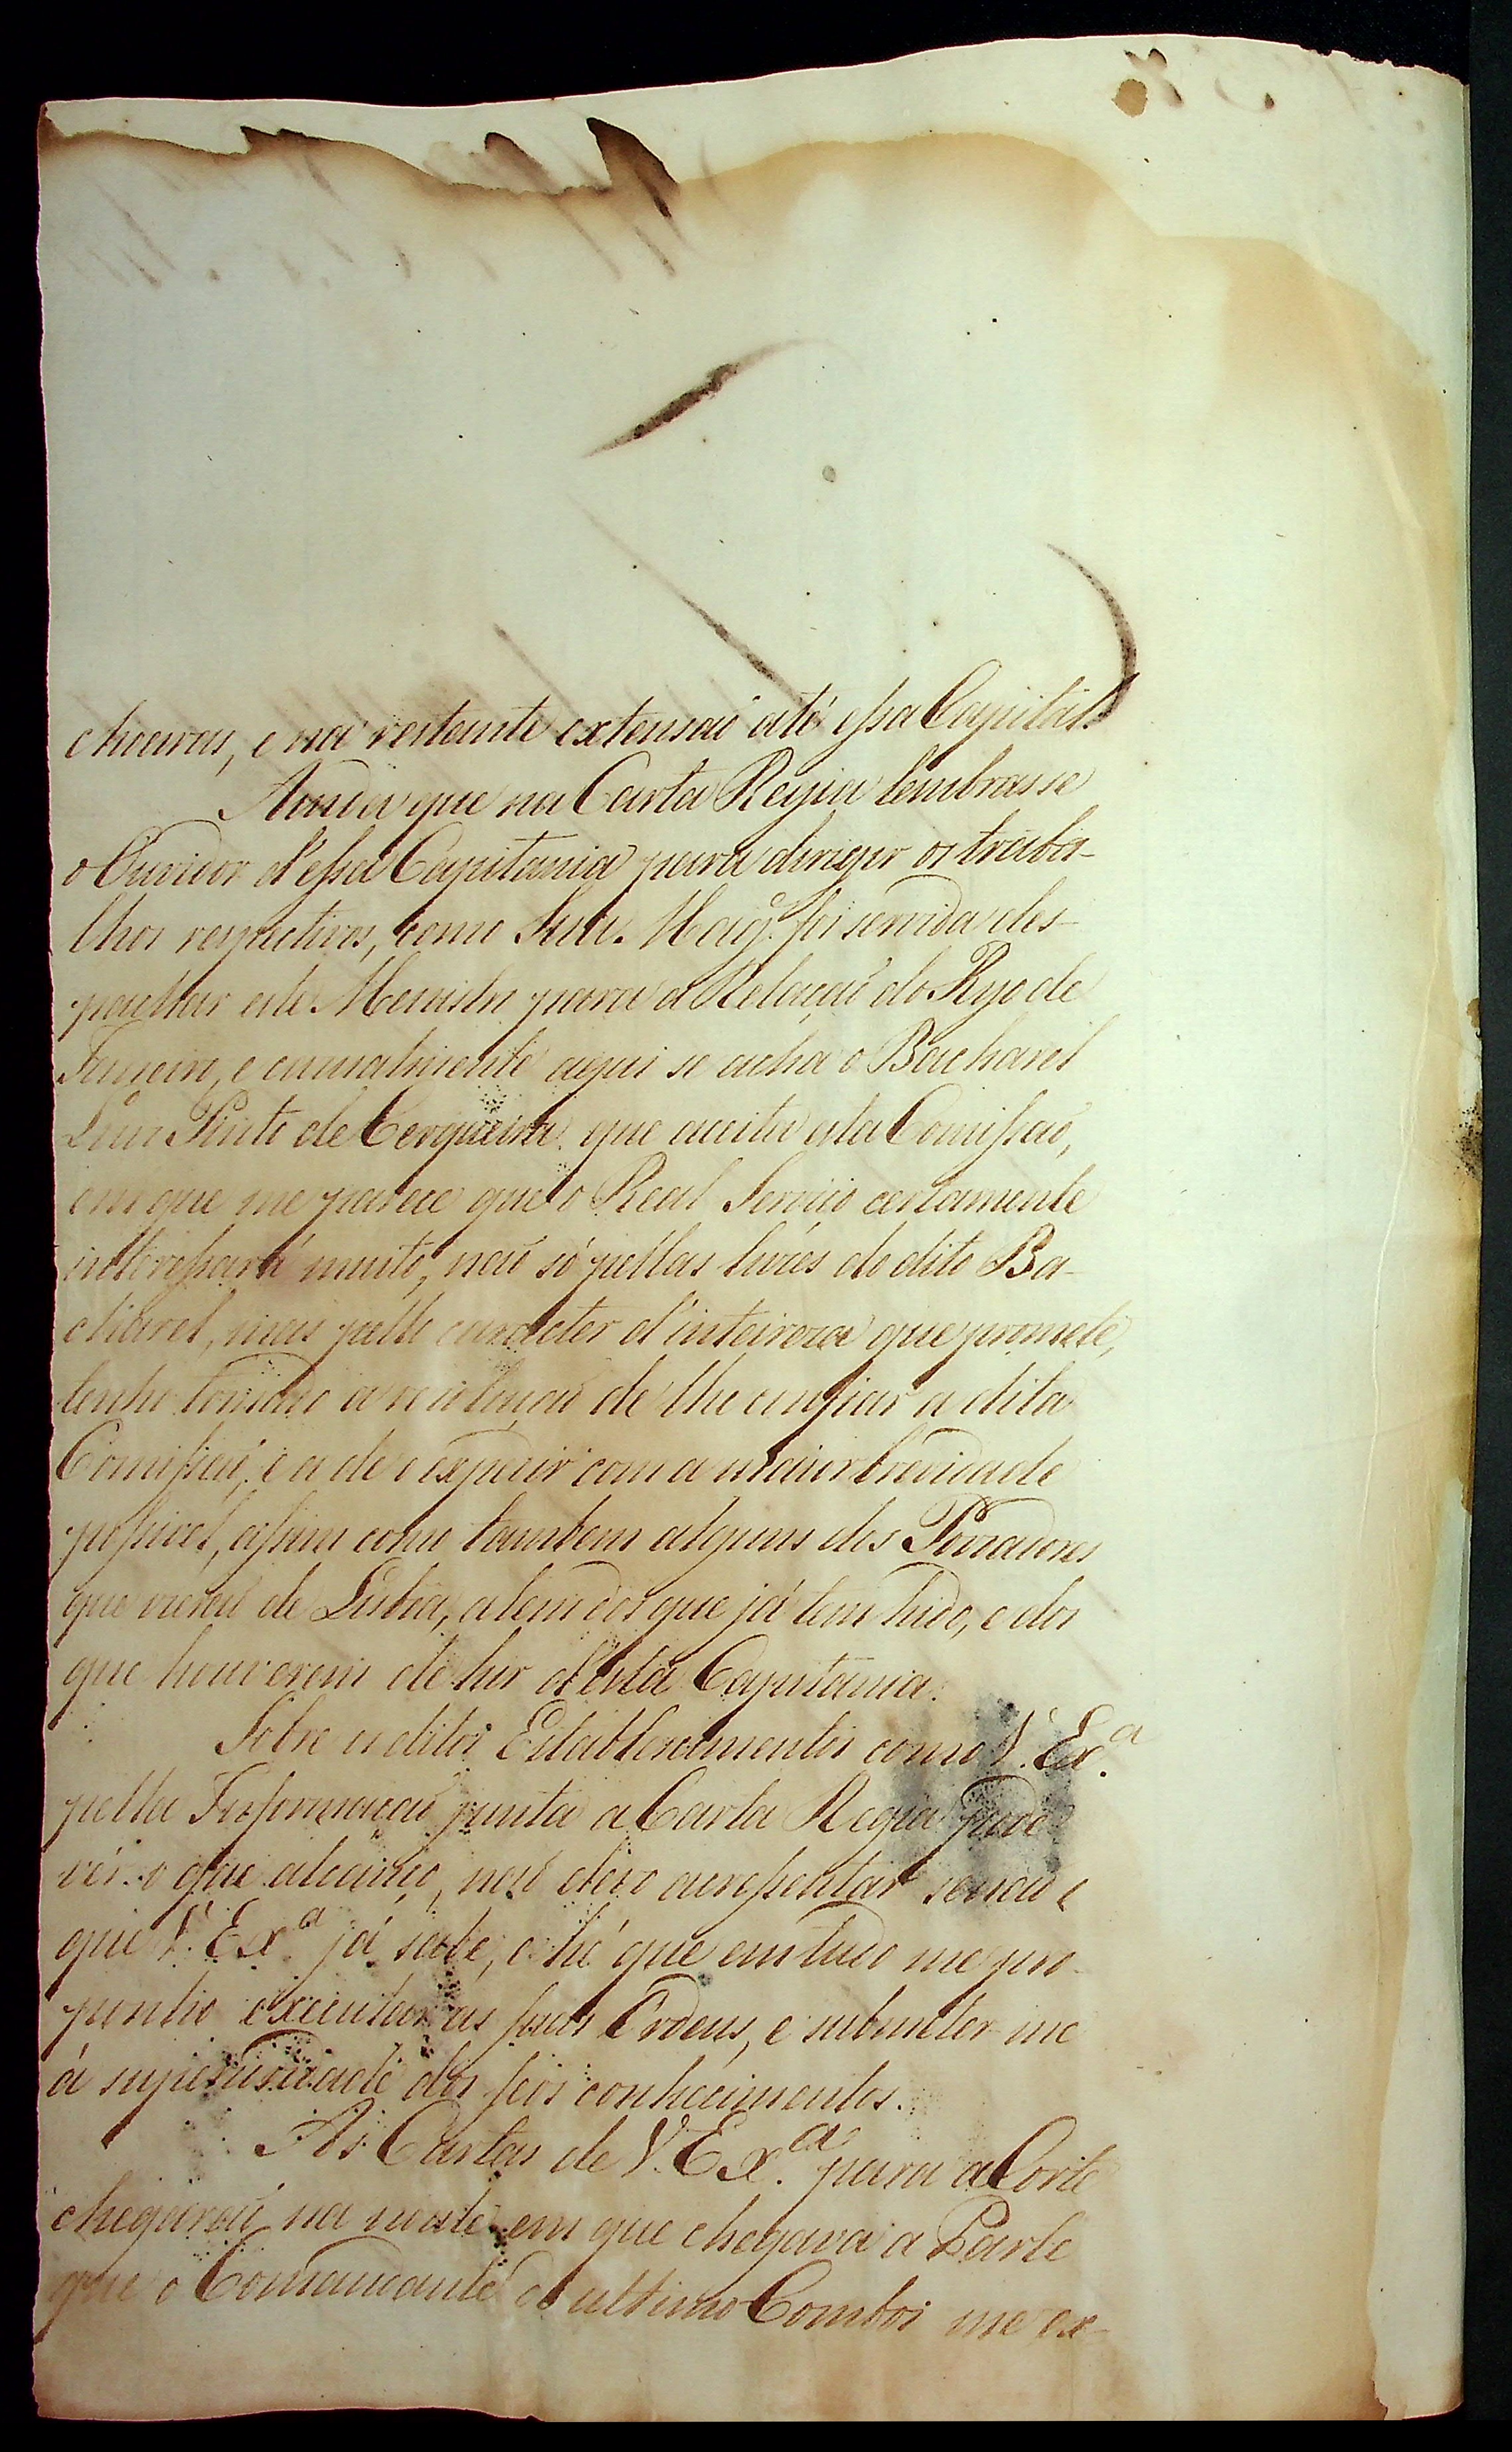 choeiras, e na restante extensaõ até essa Capital.
Ainda que na Carta Regia lembrasse
o Ouvidor d'essa Capitania para dirigir os traba-
lhos respectivos, como Sua Mag.e foi servida des-
pachar este Menistro para a Relaçaõ do Ryo de
Janeiro, e aqui se acha o Bacharel
Luis Pinto de Cerqueira que aceita esta Comissaõ,
em que me parece que o Real Serviço certamente
interessará muito, naõ só pellas luzes do dito Ba-
charel, mas pello caracter d'inteireza que promete,
tenho tomado a resoluçaõ de lhe confiar a dita
Comissaõ, e a de o expedir com a maior brevidade
possivel, assim como tambem alguns dos Povoadores
que vieraõ de Lisboa, alem dos que já tem hido, e dos
que houverem de hir d'esta Capitania.
Sobre os ditos Establescimentos como V. Ex.a
pella Informaçaõ junta a Carta Regia pode
ver o que alcanço, naõ devo acressentar senaõ o
que V. Ex.a já sabe, e hé que em tudo me pro-
ponho executar as suas Ordens, e submeter-me
á superioridade dos seos conhecimentos.
As Cartas de V. Ex.a para a Corte
chegaraõ na noute em que chegava a Parte
que o Comandante do ultimo Comboi me ex-